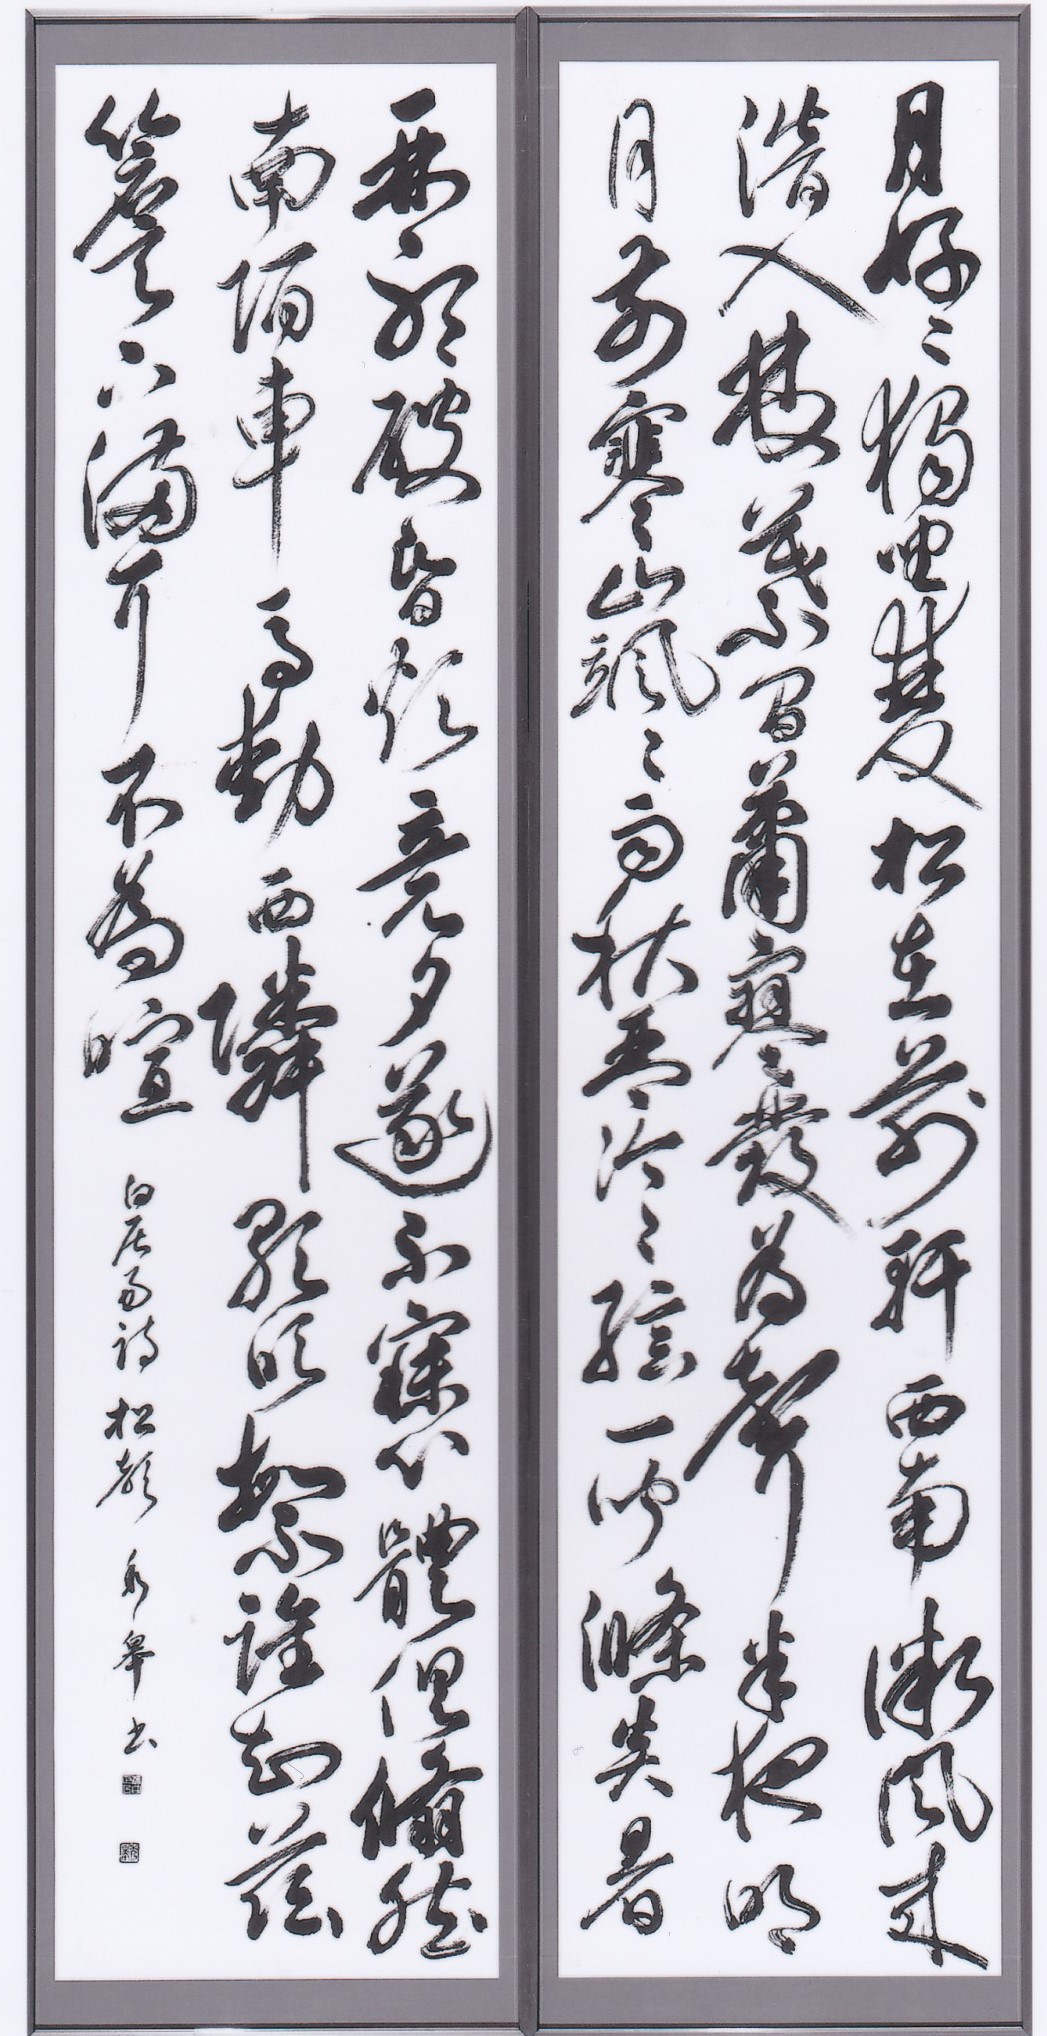 月好〻獨坐雙松在前軒西南微風来
潛入枝葉間蕭寥發為聲半夜明
月前寒山颯〻雨秋琴泠〻絃一聞滌炎暑
再聽破昏煩竟夕遂不寐心體俱翛然
南陌車馬動西隣歌吹繁誰知茲
簷下滿耳不為喧
白居易詩 松聲 秀皋書